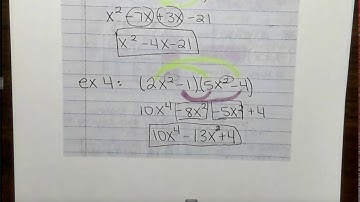 x² -7x +3x -21
x² -4x -21
ex 4: (2x² -1)(5x² -4)
10x⁴ -8x² -5x² +4
10x⁴ -13x² +4